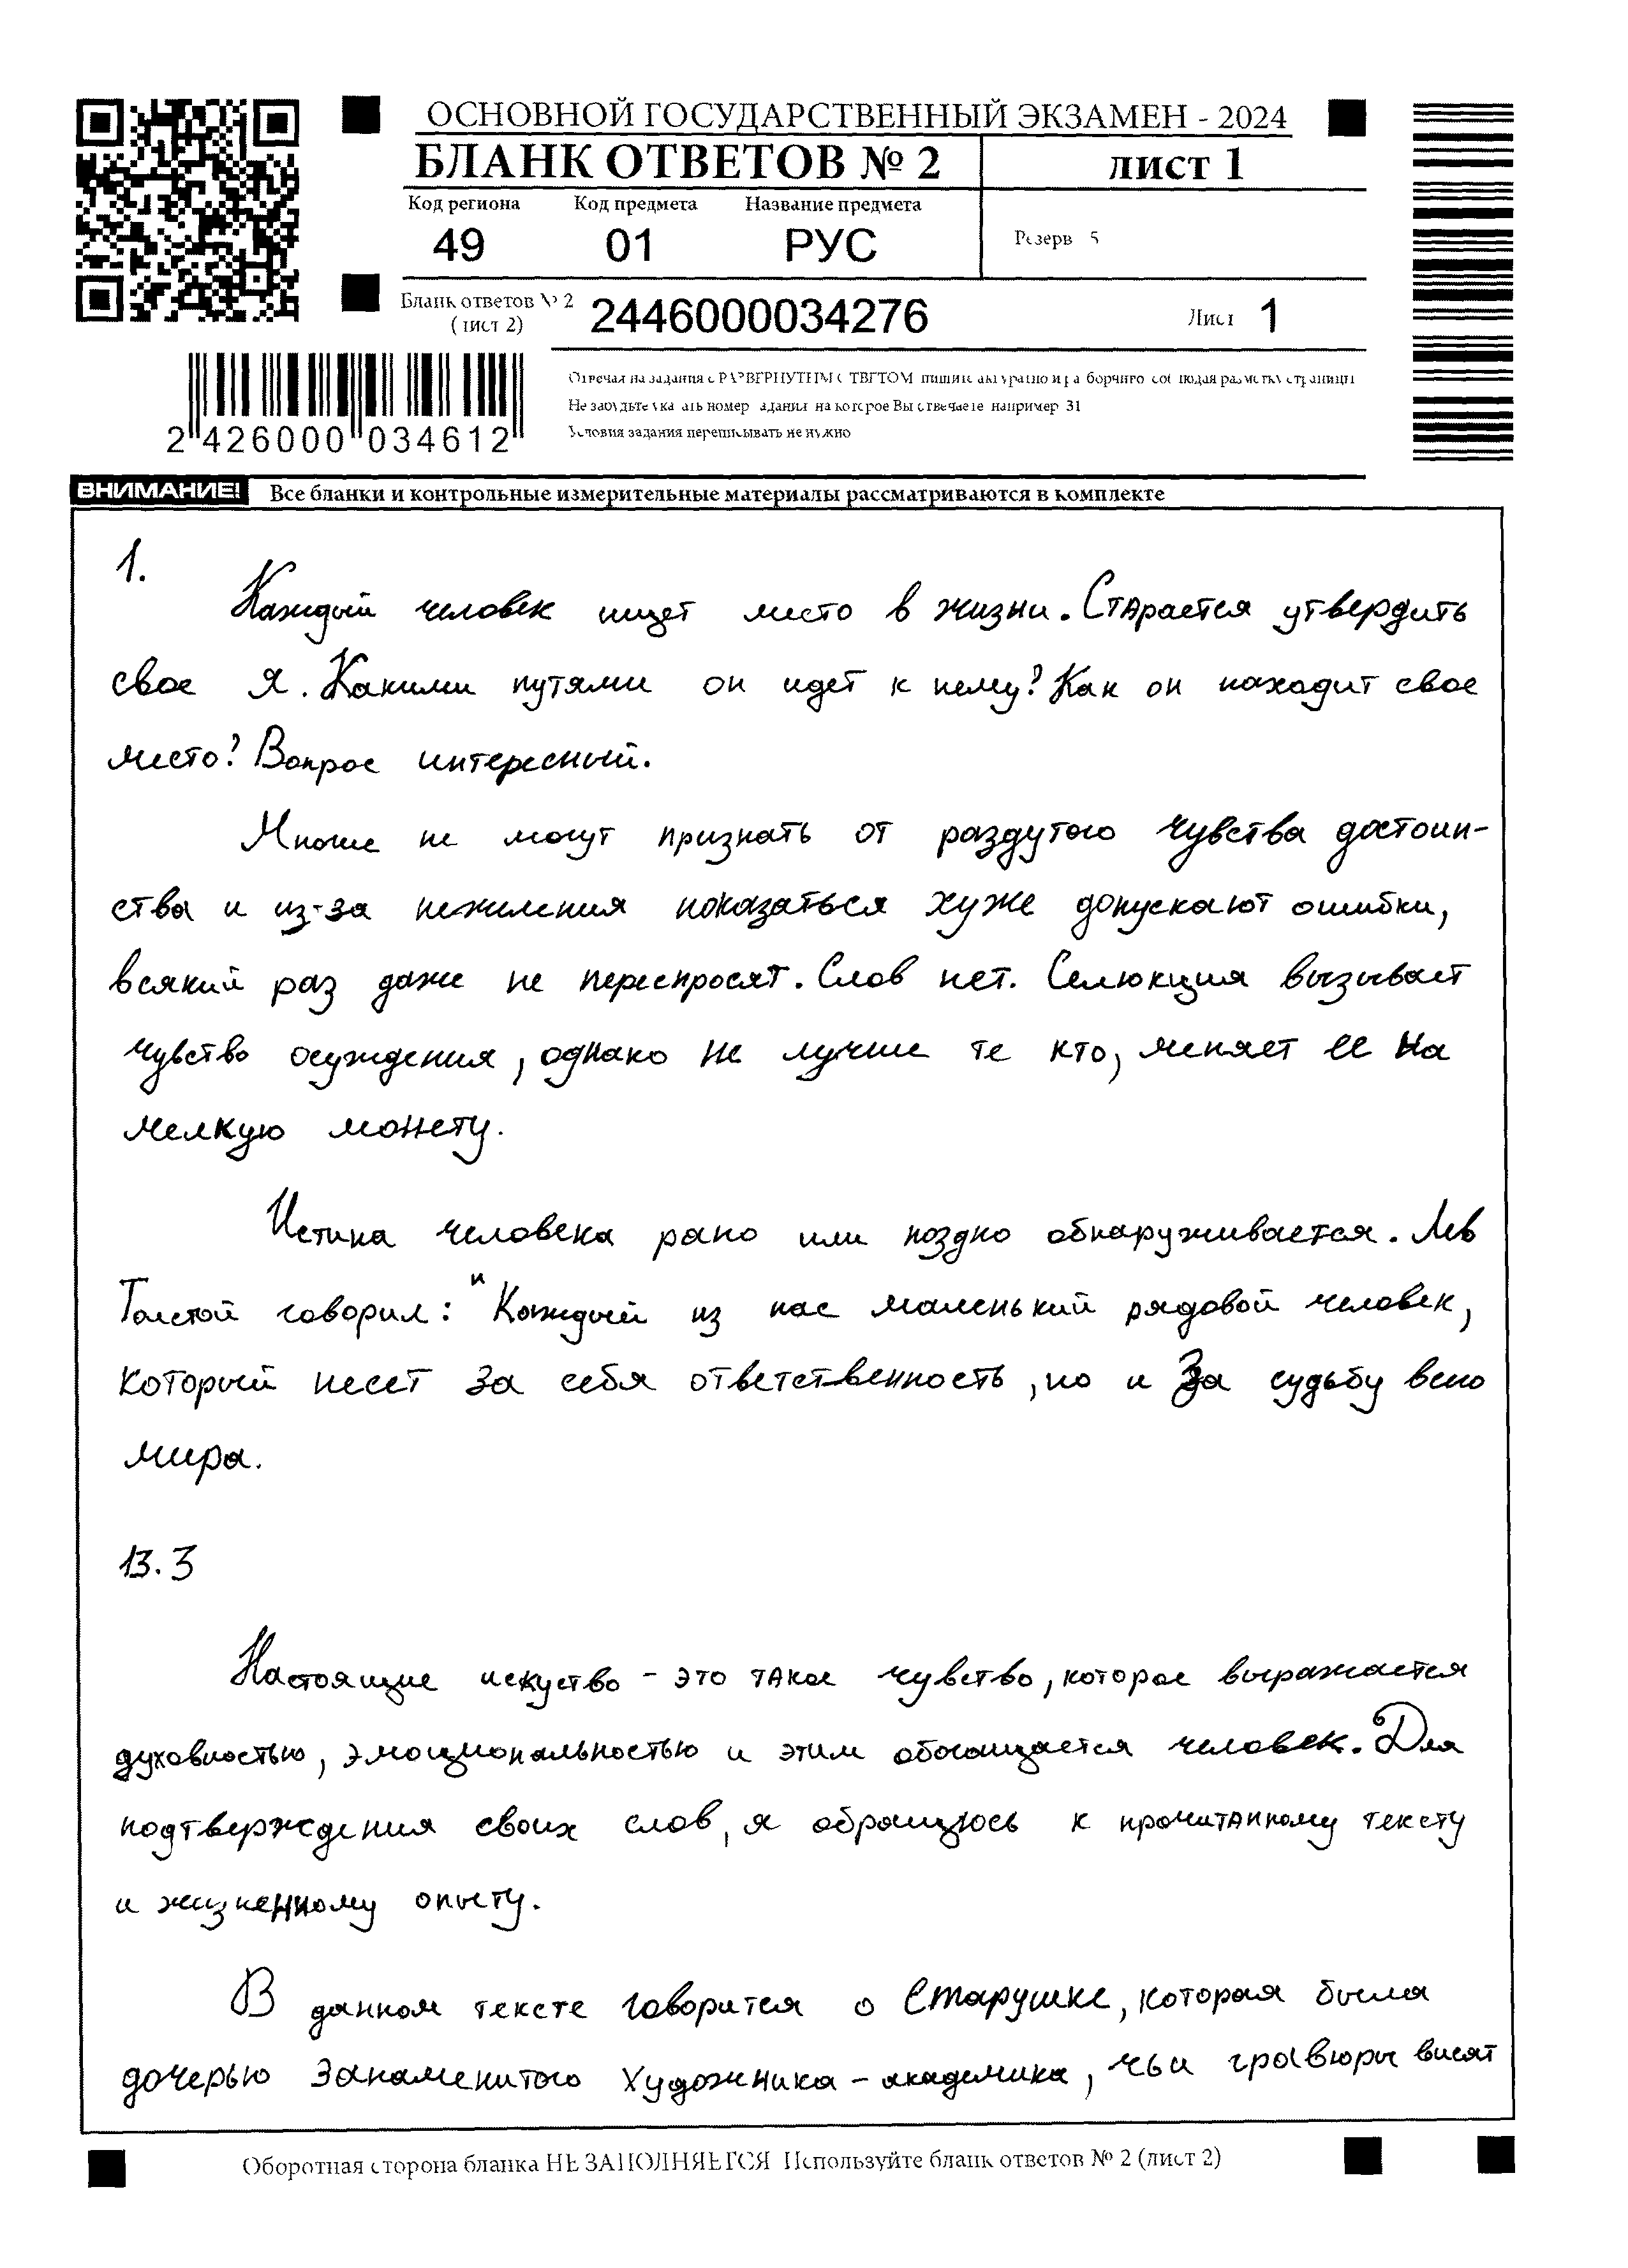 ОСНОВНОЙ ГОСУДАРСТВЕННЫЙ ЭКЗАМЕН - 2024
БЛАНК ОТВЕТОВ № 2
лист 1
Код региона Код предмета Название предмета
49 01 РУС
Резерв 5
Бланк ответов № 2
(лист 2)
2446000034276
Лист 1
2 426000 034612
Отвечая на задания с РАЗВЕРНУТЫМ ОТВЕТОМ пишите аккуратно и разборчиво соблюдая разметку страницы
Не забудьте указать номер задания на которое Вы отвечаете например 31
Условия задания переписывать не нужно
ВНИМАНИЕ! Все бланки и контрольные измерительные материалы рассматриваются в комплекте
1.
Каждый человек ищет место в жизни. Старается утвердить
свое я. Какими путями он идет к нему? Как он находит свое
место? Вопрос интересный.
Многие не могут признать от раздутого чувства достоин-
ства и из-за нежиления показаться хуже допускают ошибки,
всякий раз даже не переспросят. Слов нет. Селюкция вызывает
чувство осуждения, однако не лучше те кто, меняет ее на
мелкую монету.
Истина человека рано или поздно обнаруживается. Лев
Толстой говорил: "Каждый из нас маленький рядовой человек,
который несет за себя ответственность, но и за судьбу всего
мира.
13.3
Настоящие искуство - это такое чувство, которое выражается
духовностью, эмоциональностью и этим обогащается человек. Для
подтверждения своих слов, я обращюсь к прочитанному тексту
и жизненному опыту.
В данном тексте говорится о старушке, которая была
дочерью занаменитого художника - академика, чьи гравюры висят
Оборотная сторона бланка НЕ ЗАПОЛНЯЕТСЯ Используйте бланк ответов № 2 (лист 2)